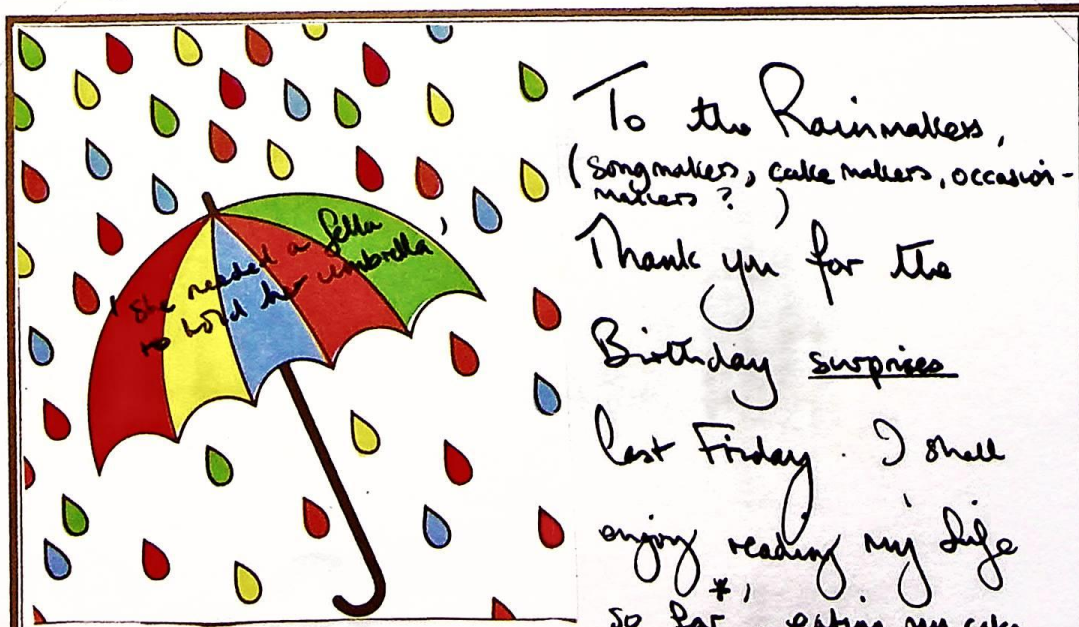 ' she needed a fella
to hold her umbrella '
To the Rainmakers,
(songmakers, cake makers, occasion-
makers ? )
Thank you for the
Birthday surprises
last Friday. I shall
enjoy reading my life
so far *, eating my cake